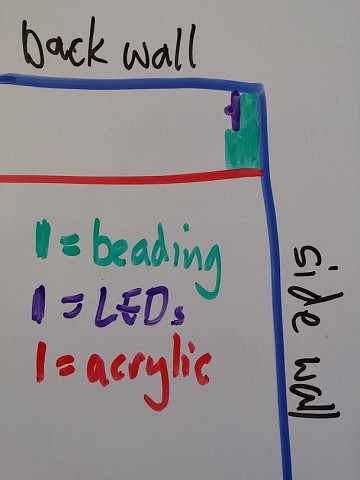 back wall
| = beading
| = LEDs
| = acrylic
side wall